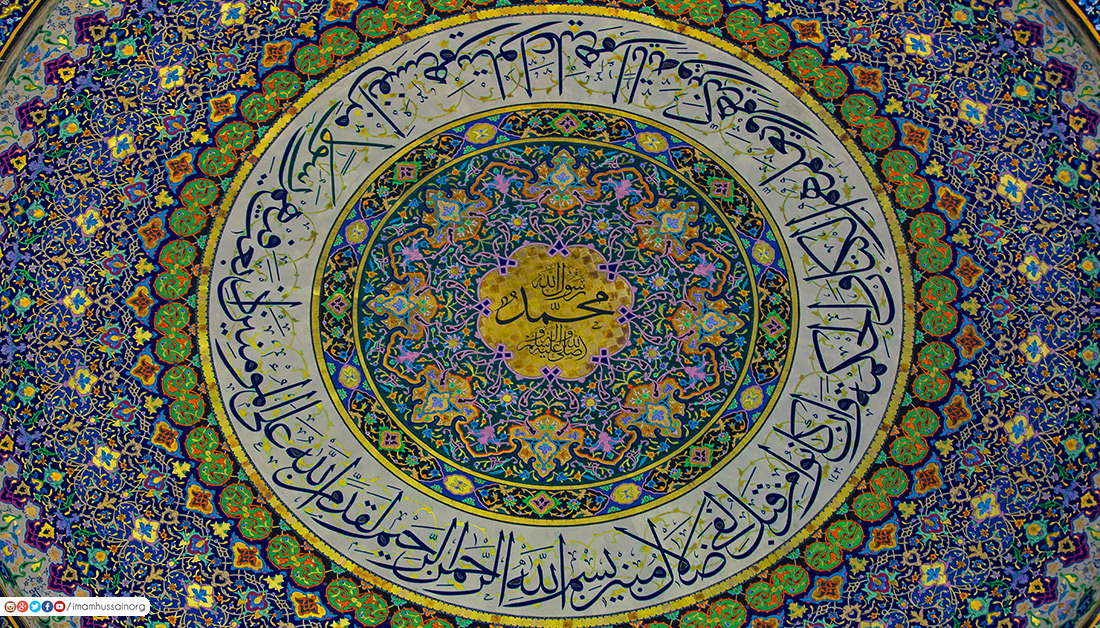 بسم الله الرحمن الرحيم لقد من الله على المؤمنين إذ بعث فيهم رسولا من أنفسهم يتلو عليهم آياته ويزكيهم ويعلمهم الكتاب والحكمة وإن كانوا من قبل لفي ضلال مبين
رسول الله
محمد
صلى الله عليه وآله وسلم
/imamhussainorg